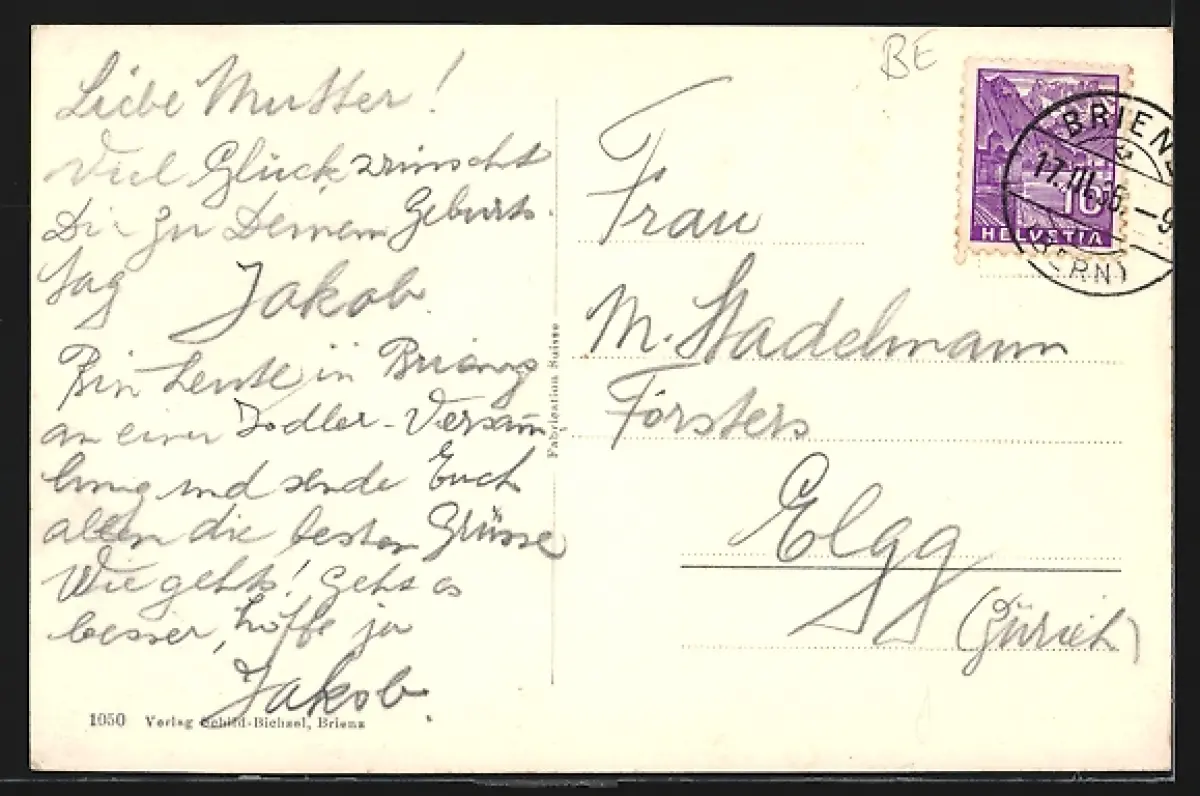 Liebe Mutter!
Viel Glück wünscht
Dir zu Deinem Geburts-
tag Jakob
Bin heute in Brienz
an einer Jodler-Versamm
lung und sende Euch
allen die besten Grüsse
Wie gehts! Gehts es
besser, hoffe ja
Jakob.
1050 Verlag Schild-Bichsel, Brienz
Fabrication Suisse
BE
10
HELVETIA
BRIENZ
17.III.36.-9
(BERN)
Frau
M. Stadelmann
Försters
Elgg
(Zürich)